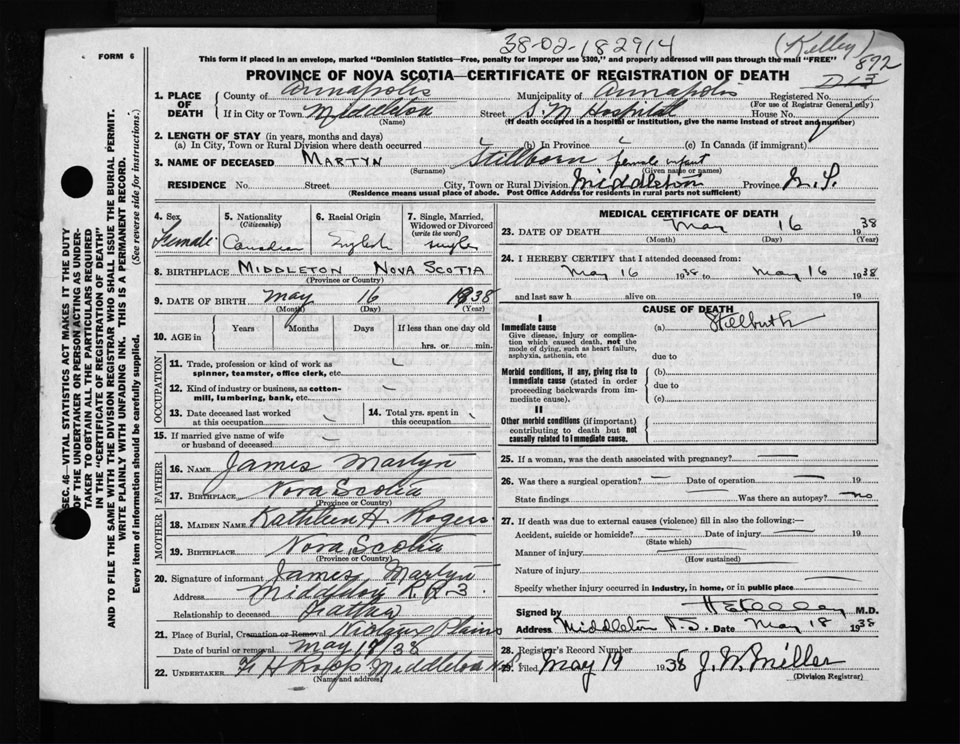 38-02-182914
(Kelley)
872
FORM 6
This form if placed in an envelope, marked "Dominion Statistics—Free, penalty for improper use $300," and properly addressed will pass through the mail "FREE"
PROVINCE OF NOVA SCOTIA—CERTIFICATE OF REGISTRATION OF DEATH
1. PLACE OF DEATH
County of Annapolis Municipality of Annapolis Registered No.
(For use of Registrar General only)
If in City or Town Middleton Street S. M Hospital House No.
(Name) (If death occurred in a hospital or institution, give the name instead of street and number)
2. LENGTH OF STAY (in years, months and days)
(a) In City, Town or Rural Division where death occurred (b) In Province (c) In Canada (if immigrant)
3. NAME OF DECEASED MARTYN Stillborn female infant
(Surname) (Given name or names)
RESIDENCE No. Street City, Town or Rural Division Middleton Province N.S.
(Residence means usual place of abode. Post Office Address for residents in rural parts not sufficient)
4. Sex Female
5. Nationality (Citizenship) Canadian
6. Racial Origin English
7. Single, Married, Widowed or Divorced (write the word) single
8. BIRTHPLACE MIDDLETON NOVA SCOTIA
(Province or Country)
9. DATE OF BIRTH May 16 1938
(Month) (Day) (Year)
10. AGE in Years Months Days If less than one day old
hrs. or min.
OCCUPATION
11. Trade, profession or kind of work as spinner, teamster, office clerk, etc.
12. Kind of industry or business, as cotton-mill, lumbering, bank, etc.
13. Date deceased last worked at this occupation
14. Total yrs. spent in this occupation
15. If married give name of wife or husband of deceased
FATHER
16. NAME James Martyn
17. BIRTHPLACE Nova Scotia
(Province or Country)
MOTHER
18. MAIDEN NAME Kathleen H. Rogers
19. BIRTHPLACE Nova Scotia
(Province or Country)
20. Signature of informant James Martyn
Address Middleton R.R. 3.
Relationship to deceased Father
21. Place of Burial, Cremation or Removal Plains
Date of burial or removal May 18/38
22. UNDERTAKER Middleton N.S.
(Name and address)
MEDICAL CERTIFICATE OF DEATH
23. DATE OF DEATH May 16 1938
(Month) (Day) (Year)
24. I HEREBY CERTIFY that I attended deceased from:
May 16 1938 to May 16 1938
and last saw h alive on 19
CAUSE OF DEATH
I
Immediate cause (a) Stillbirth
Give disease, injury or complication which caused death, not the mode of dying, such as heart failure, asphyxia, asthenia, etc
due to
Morbid conditions, if any, giving rise to immediate cause (stated in order proceeding backwards from immediate cause).
(b)
due to
(c)
II
Other morbid conditions (if important) contributing to death but not causally related to immediate cause.
25. If a woman, was the death associated with pregnancy?
26. Was there a surgical operation? Date of operation
State findings Was there an autopsy? no
27. If death was due to external causes (violence) fill in also the following:—
Accident, suicide or homicide? Date of injury 19
(State which)
Manner of injury
(How sustained)
Nature of injury
Specify whether injury occurred in industry, in home, or in public place
Signed by M.D.
Address Middleton N.S. Date May 18 1938
28. Registrar's Record Number
29. Filed May 19 1938 J. W. Miller
(Division Registrar)
SEC. 46—VITAL STATISTICS ACT MAKES IT THE DUTY
OF THE UNDERTAKER OR PERSON ACTING AS UNDER-
TAKER "TO OBTAIN ALL THE PARTICULARS REQUIRED
IN THE "CERTIFICATE OF REGISTRATION OF DEATH"
AND TO FILE THE SAME WITH THE DIVISION REGISTRAR WHO SHALL ISSUE THE BURIAL PERMIT.
WRITE PLAINLY WITH UNFADING INK. THIS IS A PERMANENT RECORD.
Every item of information should be carefully supplied. (See reverse side for instructions.)